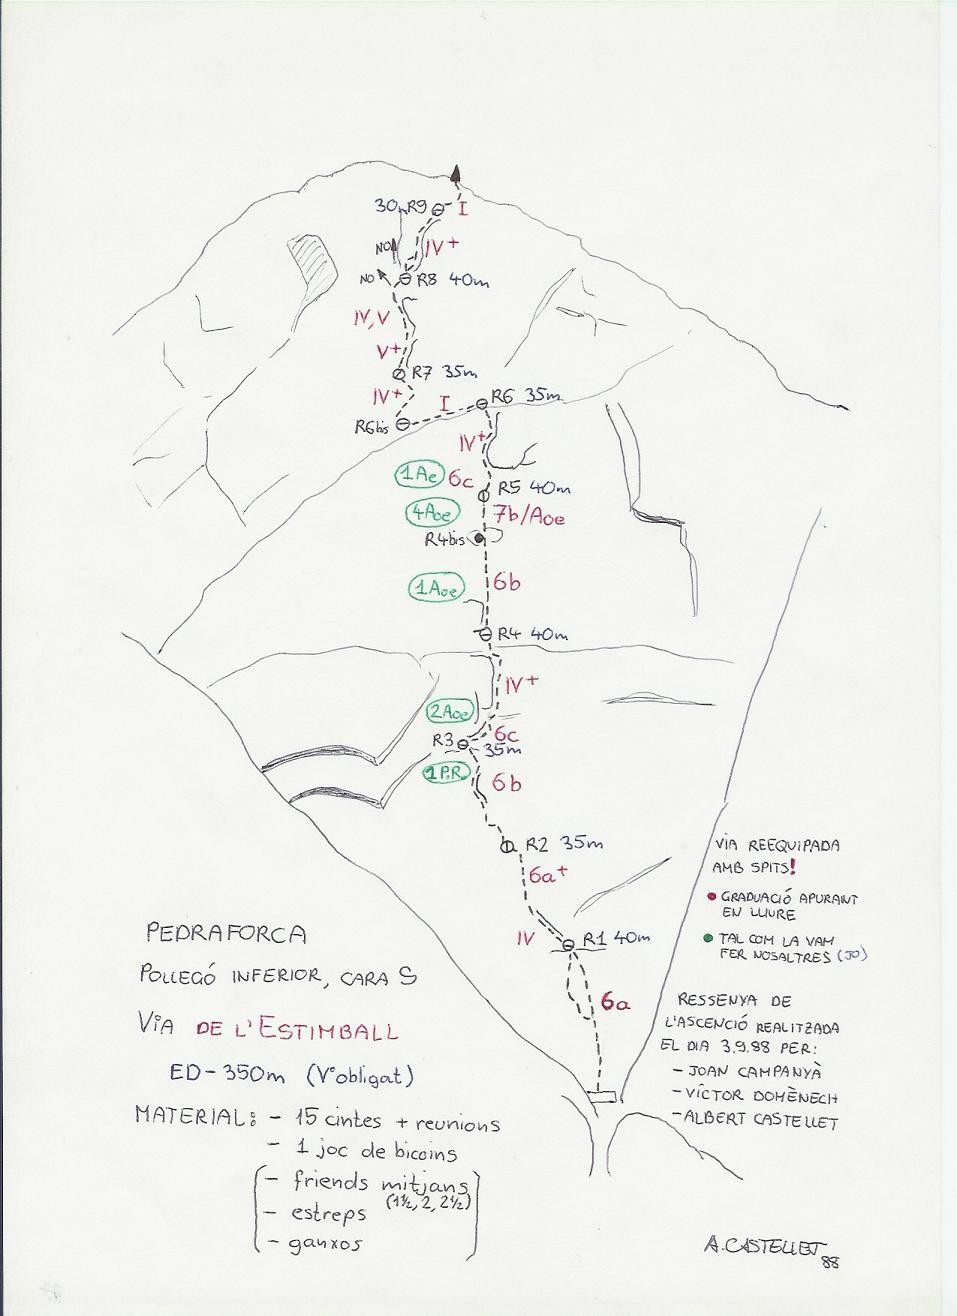 30m R9
I
NO
IV+
NO
R8 40m
IV, V
V+
R7 35m
IV+
I
R6 35m
R6bis
IV+
1Ae
6c
R5 40m
4Aoe
7b/Aoe
R4bis
1Aoe
6b
R4 40m
IV+
2Aoe
6c
R3
35m
1P.R.
6b
R2 35m
6a+
IV
R1 40m
6a
VIA REEQUIPADA
AMB SPITS!
GRADUACIÓ APURANT
EN LLIURE
TAL COM LA VAM
FER NOSALTRES (JO)
PEDRAFORCA
POLLEGÓ INFERIOR, CARA S
VIA DE L'ESTIMBALL
ED-350m (V°obligat)
MATERIAL: - 15 cintes + reunions
- 1 joc de bicoins
- friends mitjans
(1½, 2, 2½)
- estreps
- ganxos
RESSENYA DE
L'ASCENCIÓ REALITZADA
EL DIA 3.9.88 PER:
- JOAN CAMPANYÀ
- VÍCTOR DOMÈNECH
- ALBERT CASTELLET
A. CASTELLET
88